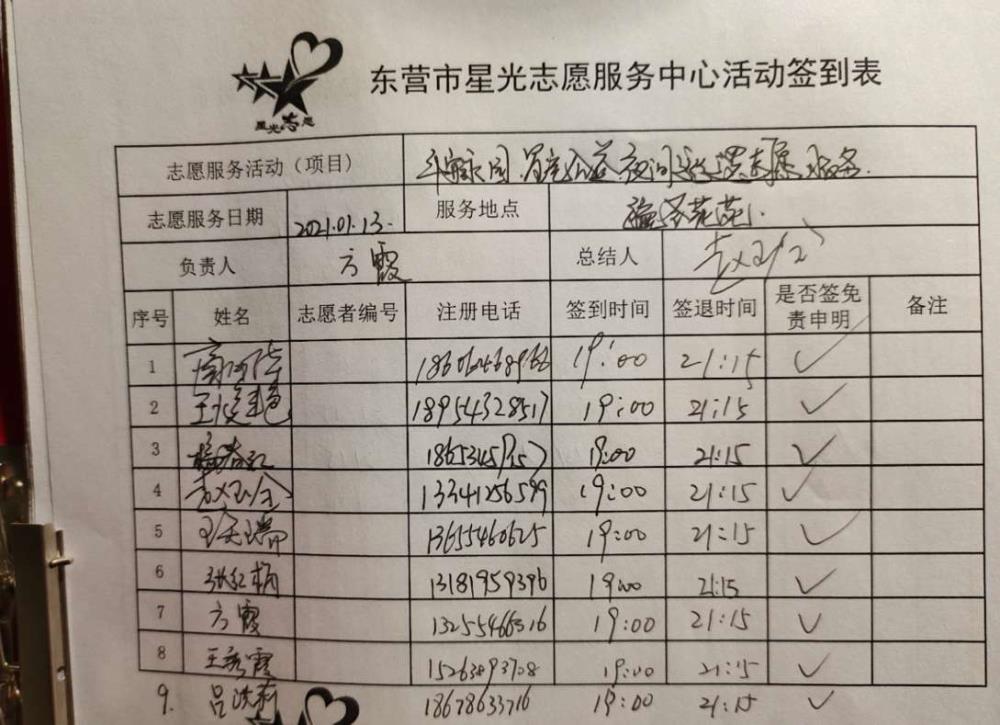 星光志愿
东营市星光志愿服务中心活动签到表
志愿服务活动（项目） 夜间 志愿服务.
志愿服务日期 2021.01.13. 服务地点
负责人 方霞 总结人
序号 姓名 志愿者编号 注册电话 签到时间 签退时间 是否签免责申明 备注
1 19:00 21:15 ✓
2 18954328517 19:00 21:15 ✓
3 19:00 21:15 ✓
4 13341256599 19:00 21:15 ✓
5 13655460625 19:00 21:15 ✓
6 张红梅 13181959396 19:00 21:15 ✓
7 方霞 13255466316 19:00 21:15 ✓
8 王秀霞 15263893708 19:00 21:15 ✓
9. 吕洪莉 18678633716 19:00 21:15 ✓